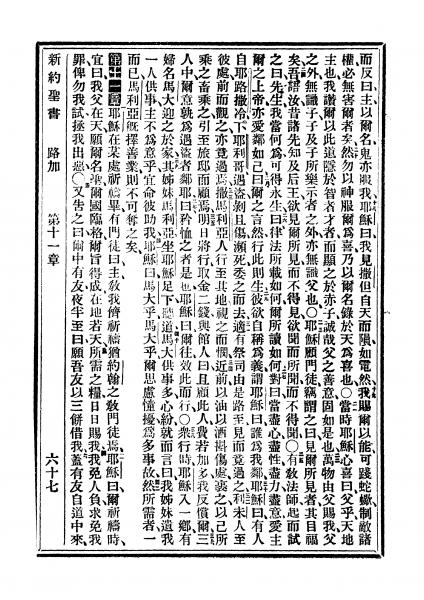 而反曰主以爾名鬼亦服我耶穌曰我見撒但自天而隕如電然我賜爾以能可踐蛇蠍制敵諸
權必無害爾者矣然勿以神服爾爲喜乃以爾名錄於天爲喜也○當時耶穌心喜曰父乎天地
主也我讚爾以此道隱於智者才者而顯之於赤子誠哉父之善意固如是也萬物由父賜我父
之外無識子子及子所樂示者之外亦無識父也○耶穌顧門徒竊謂之曰見爾所見者其目福
矣吾語汝昔諸先知及后王欲見爾所見而不得見欲聞爾所聞而不得聞○有敎法師起而試
之曰先生我當何爲可得永生曰律法所載如何爾所讀如何對曰當盡心盡性盡力盡意愛主
爾之上帝亦愛鄰如己曰爾之言然行此則生彼欲自稱爲義謂耶穌曰誰爲我鄰耶穌曰有人
自耶路撒冷下耶利哥遇盜剝且傷瀕死委之而去適有祭司由是路至見而竟過之利未人至
彼處前而觀之亦竟過焉撒馬利亞人行至其地視之而憫近前以油以酒傷處裹之以己所
乘之畜乘之引至旅邸而顧焉明日將行取金二錢與館人曰且顧此人費若加多我反償爾三
人中爾意孰爲遇盜者鄰曰矜恤之者是也耶穌曰爾往效此而行○衆行時耶穌入一鄉有
婦名馬大迎之於家其姊妹馬利亞坐耶穌足下聽道馬大供事多心紛就而言曰我姊妹遺我
一人供事主不爲意乎宜命彼助我耶穌曰馬大乎馬大乎爾思慮憧擾爲多事故然所需者一
而已馬利亞旣擇善業則不可奪之矣
第十一章耶穌在某處祈禱畢有門徒曰主敎我儕祈禱猶約翰之敎門徒焉耶穌曰爾祈禱時
宜曰我父在天願爾名聖爾國臨格爾旨得成在地若天所需之糧日日賜我我免人負求免我
罪俾勿我試拯我出惡○又吿之曰爾中有友夜半至曰願吾友以三餅借我蓋有友自道中來
新約聖書 路加 第十一章 六十七